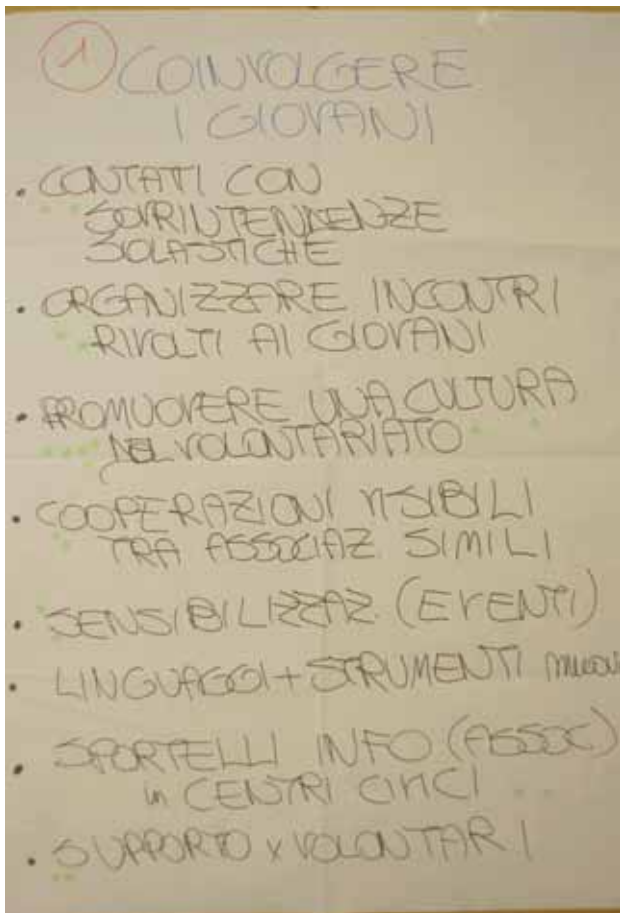 1 COINVOLGERE
I GIOVANI
• CONTATTI CON
SOVRINTENDENZE
SCOLASTICHE
• ORGANIZZARE INCONTRI
RIVOLTI AI GIOVANI
• PROMUOVERE UNA CULTURA
NEL VOLONTARIATO
• COOPERAZIONI VISIBILI
TRA ASSOCIAZ. SIMILI
• SENSIBILIZZAZ. (EVENTI)
• LINGUAGGI + STRUMENTI nuovi
• SPORTELLI INFO (ASSOC)
in CENTRI CIVICI
• SUPPORTO x VOLONTARI